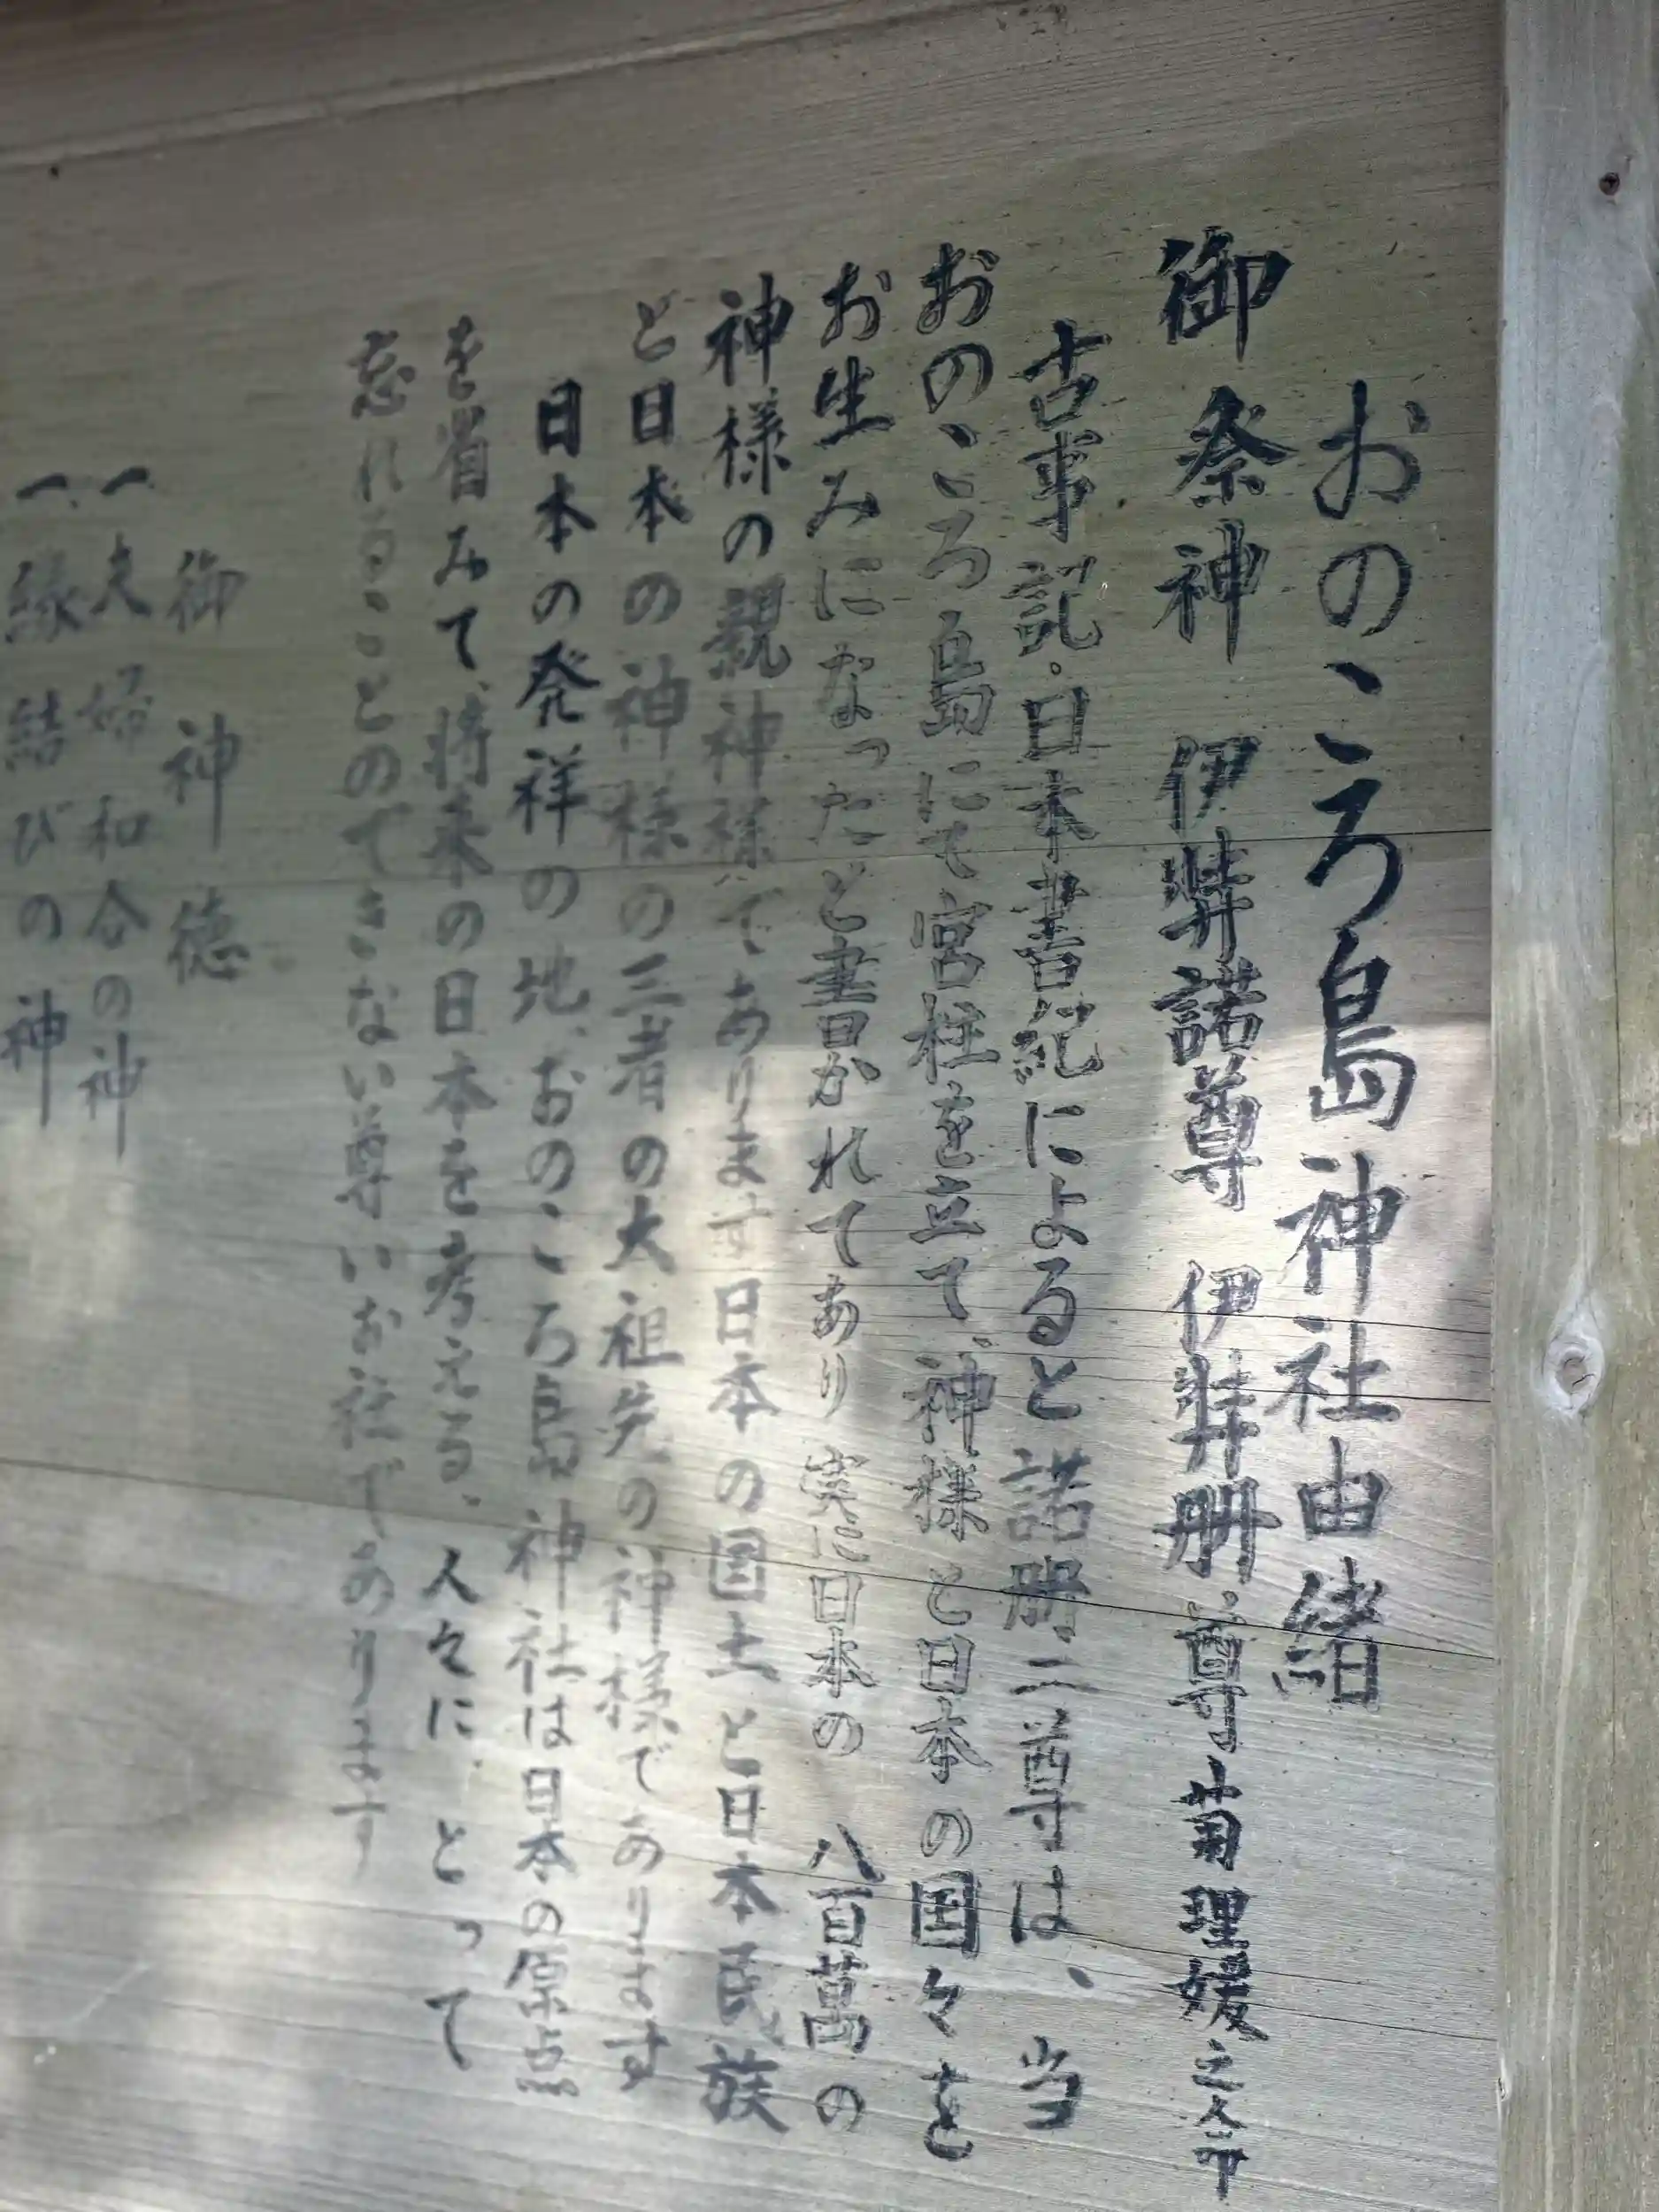 おのころ島神社由緒
御祭神 伊弉諾尊 伊弉冊尊 菊理媛之命
古事記・日本書紀によると諾冊二尊は、当
おのころ島にて宮柱を立て、神様と日本の国々を
お生みになったと書かれてあり実に日本の 八百萬の
神様の親神様であります日本の国土と日本民族
と日本の神様の三者の大祖先の神様であります
日本の発祥の地、おのころ島神社は日本の原点
を省みて、将来の日本を考える、人々に、とって
忘れることのできない尊いお社であります
御神徳
一、夫婦和合の神
一、縁結びの神